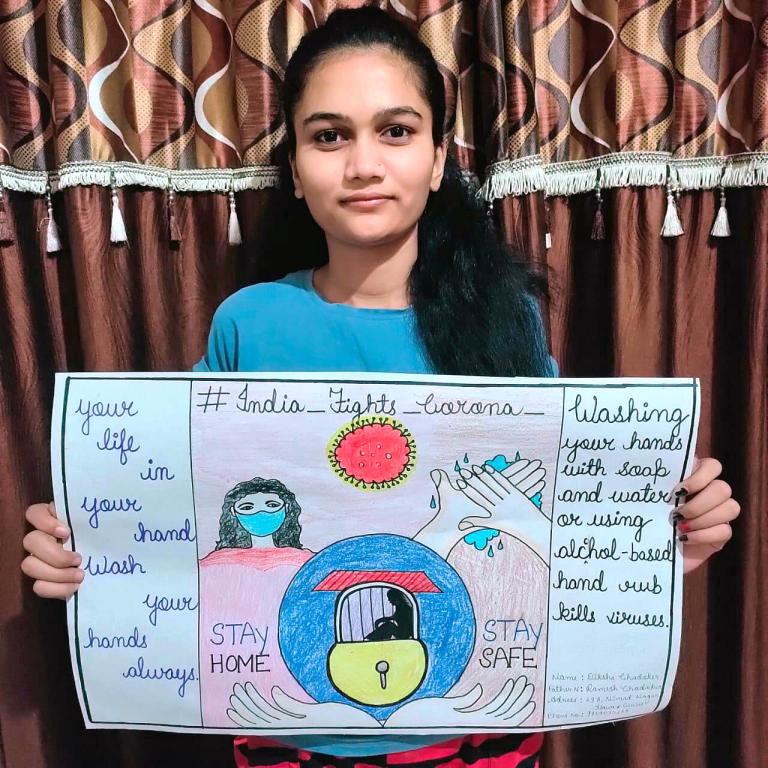 your
life
in
your
hand
Wash
your
hands
always.
# India_Fights_Corona_
STAY
HOME
STAY
SAFE
Washing
your hands
with soap
and water
or using
alcohol-based
hand rub
kills viruses.
Name :
Father N: Ramesh
Address :